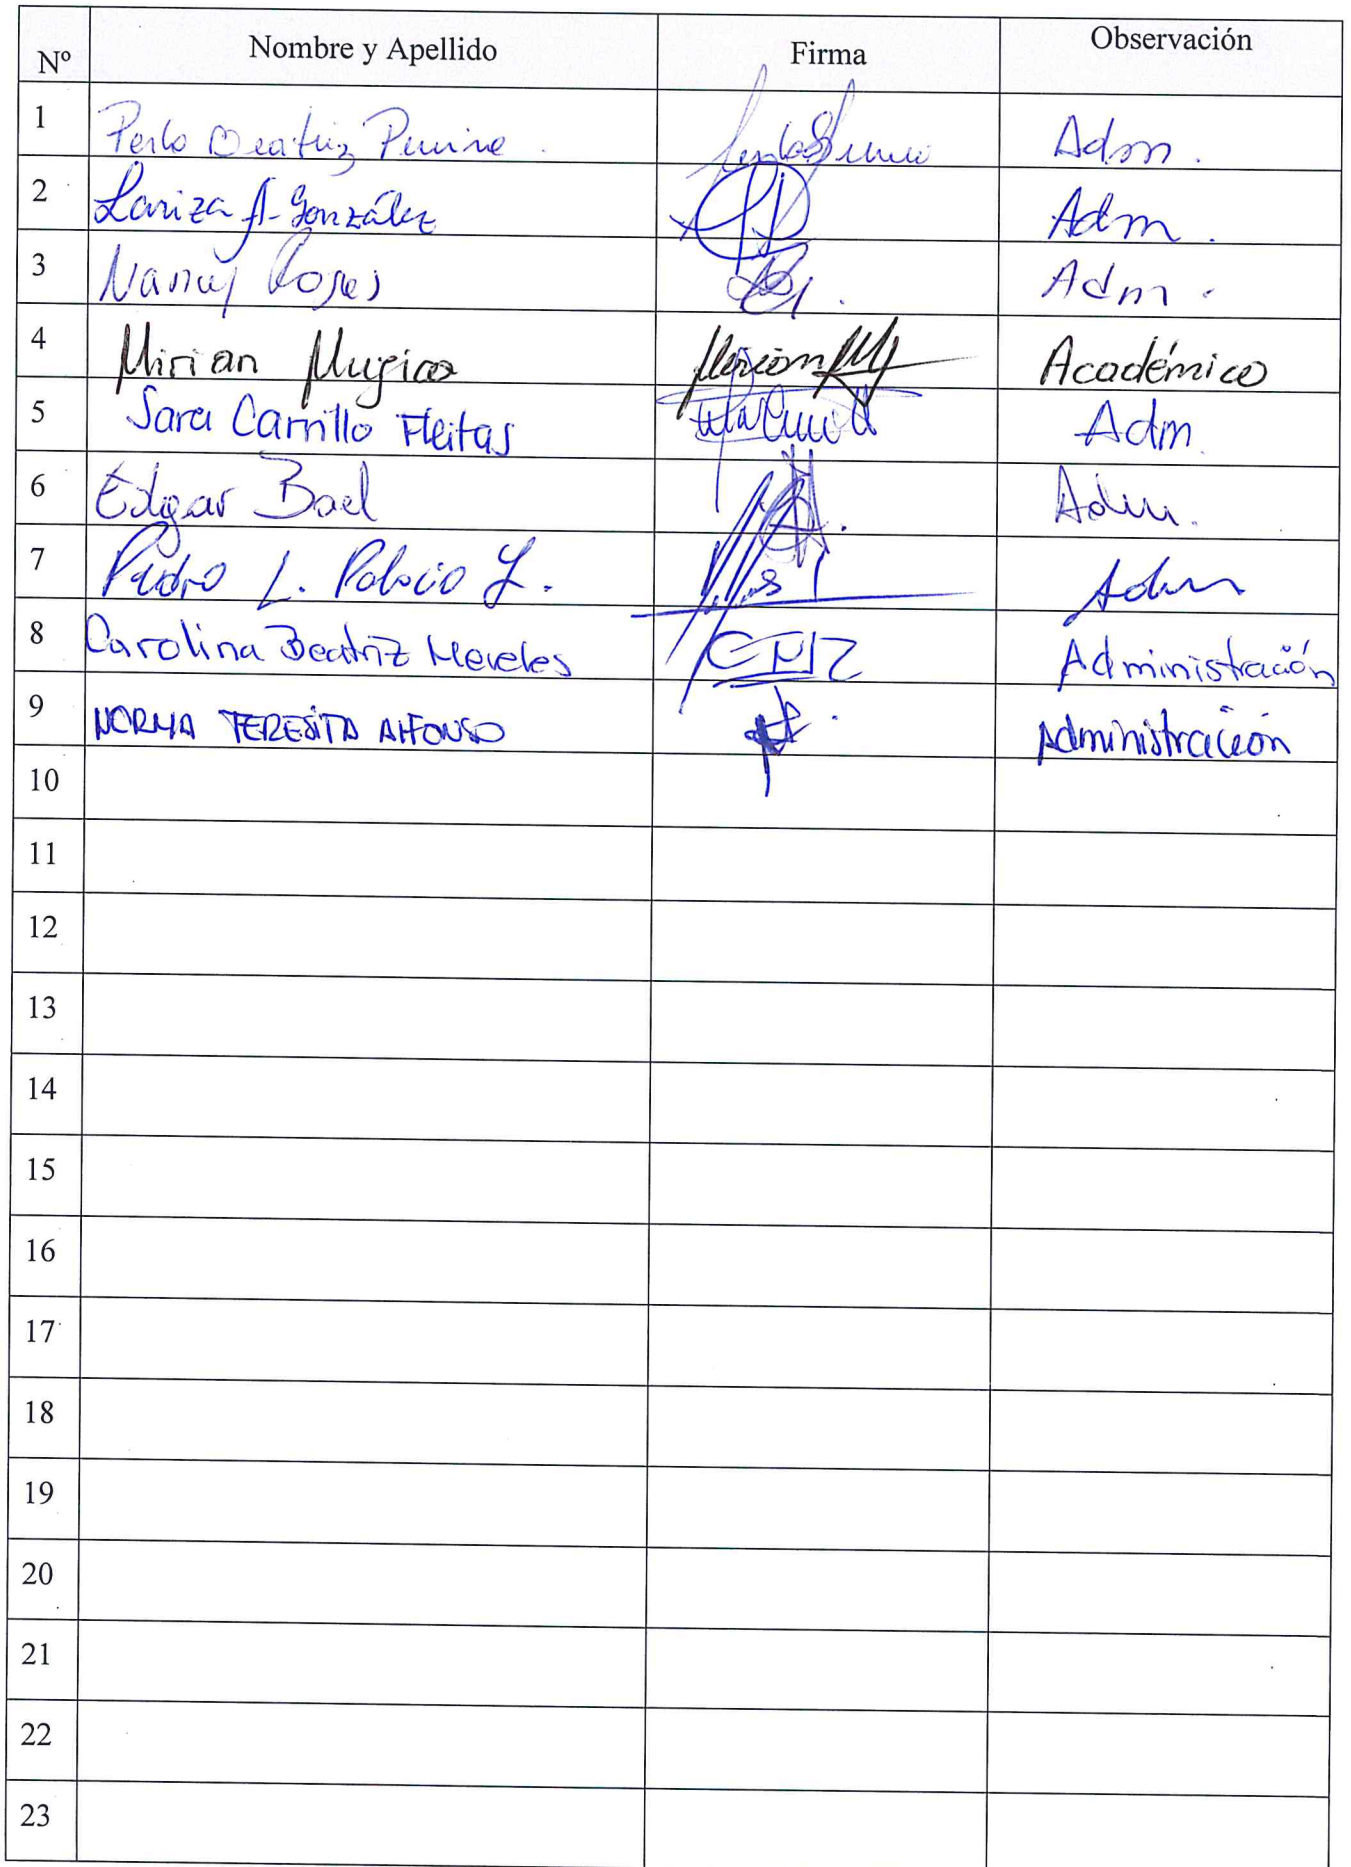 Nº Nombre y Apellido Firma Observación
1 Beatriz Adm.
2 Lariza A. González Adm.
3 Nancy Adm.
4 Mirian Mugica Mirian Académico
5 Sara Carrillo Fleitas Adm
6 Edgar Adm.
7 Pedro L. Palacio Adm
8 Carolina Beatriz Mereles Administración
9 NORMA TERESITA ALFONSO Administración
10
11
12
13
14
15
16
17
18
19
20
21
22
23